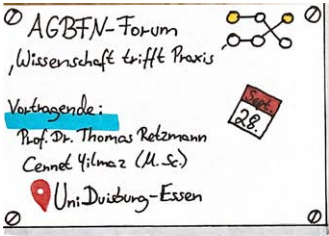 AGBFN-Forum
‚Wissenschaft trifft Praxis
Vortragende:
Prof. Dr. Thomas Retzmann
Cennet Yilmaz (M. Sc)
Uni Duisburg-Essen
Sept.
28.